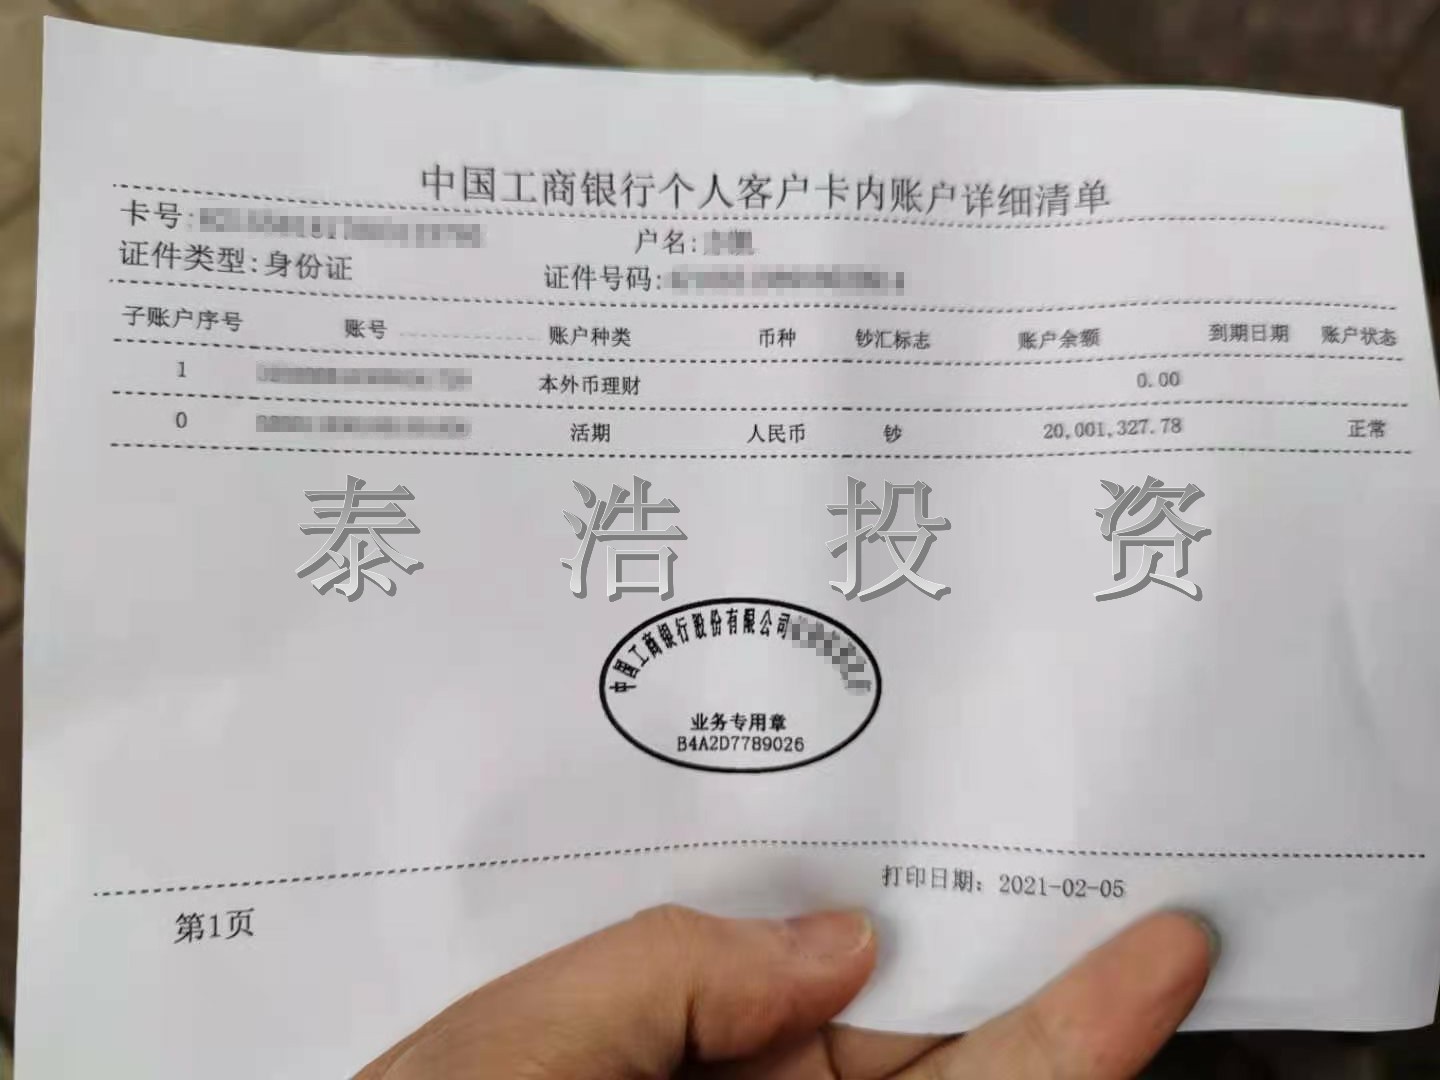 中国工商银行个人客户卡内账户详细清单
卡号:
户名:
证件类型:身份证
证件号码:
子账户序号 账号 账户种类 币种 钞汇标志 账户余额 到期日期 账户状态
1 本外币理财 0.00
0 活期 人民币 钞 20,001,327.78 正常
泰浩投资
中国工商银行股份有限公司
业务专用章
B4A2D7789026
打印日期: 2021-02-05
第1页